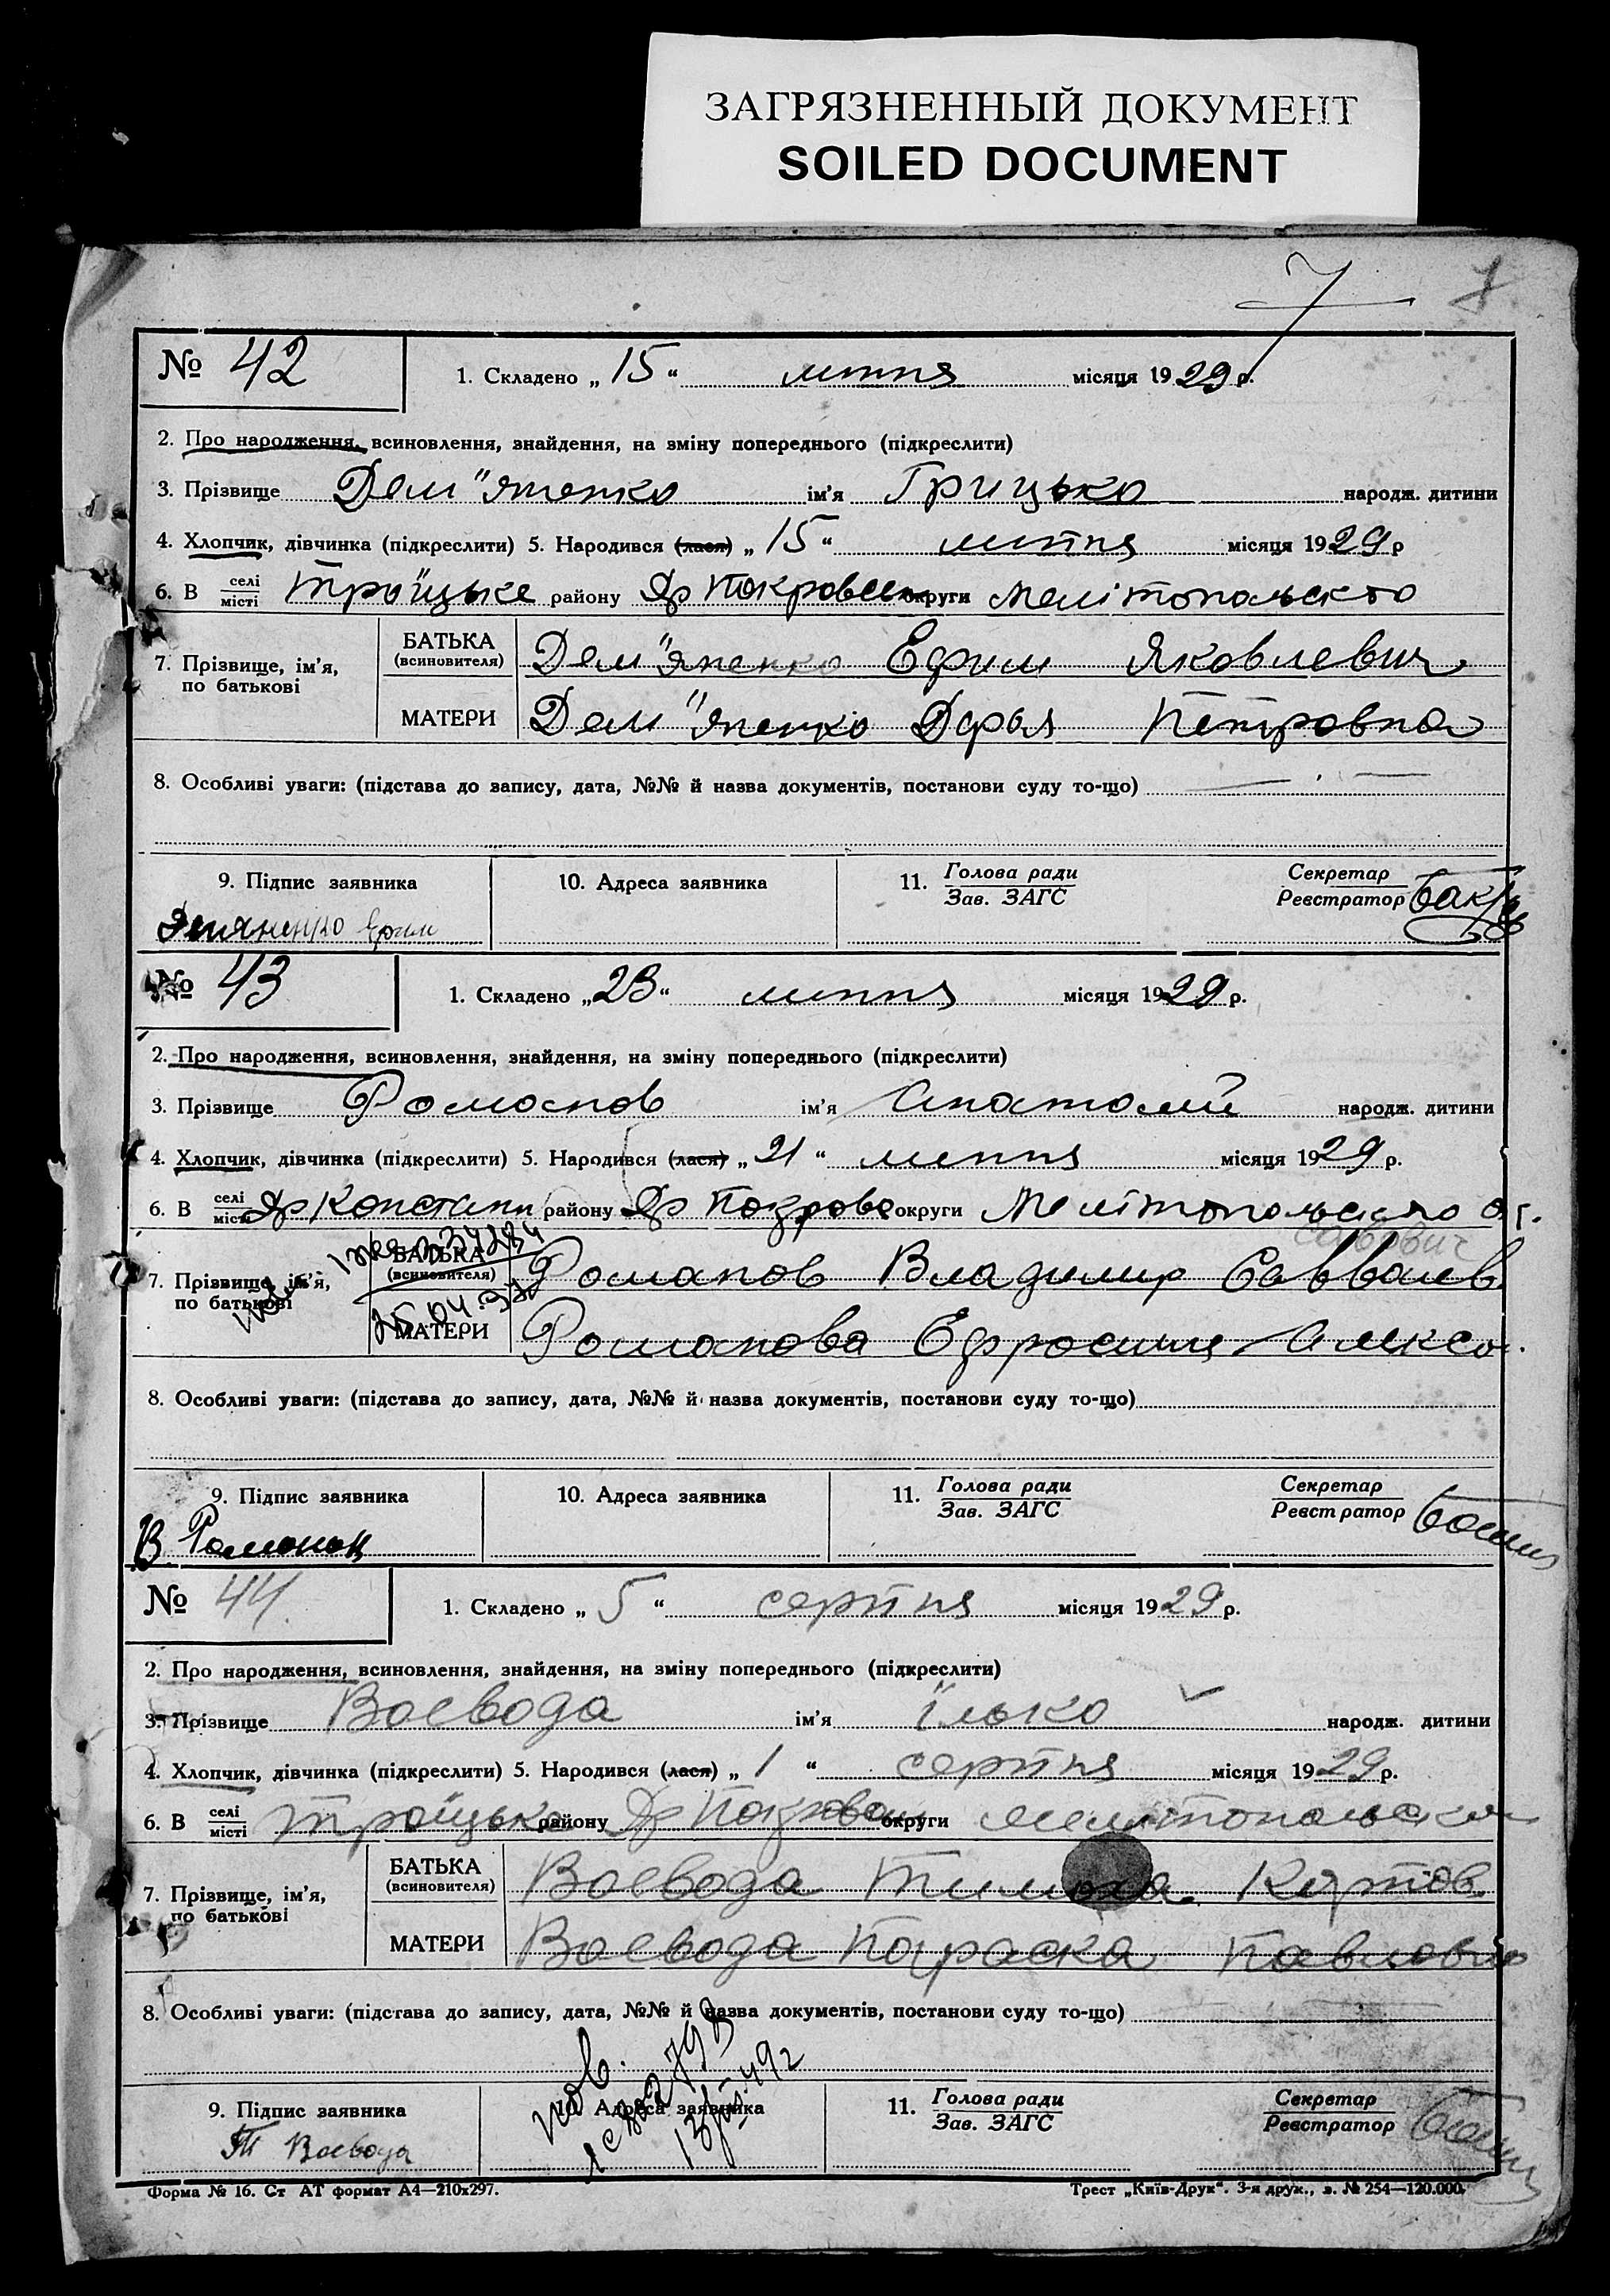 ЗАГРЯЗНЕННЫЙ ДОКУМЕНТ
SOILED DOCUMENT
7
№ 42
1. Складено „ 15 “ липня місяця 1929 р.
2. Про народження, всиновлення, знайдення, на зміну попереднього (підкреслити)
3. Прізвище Дем"яненко ім’я Грицько народж. дитини
4. Хлопчик, дівчинка (підкреслити) 5. Народився (лася) „ 15 “ липня місяця 1929 р
6. В селі місті Троїцьке району Др Покровськ округи Мелітопольсько
7. Прізвище, ім’я, по батькові
БАТЬКА (всиновителя) Дем"яненко Ефим Яковлевич
МАТЕРИ Дем"яненко Дарья Петровна
8. Особливі уваги: (підстава до запису, дата, №№ й назва документів, постанови суду то-що)
9. Підпис заявника
10. Адреса заявника
11. Голова ради Зав. ЗАГС
Секретар Реєстратор
Демяненко Ефим
№ 43
1. Складено „ 23 “ липня місяця 1929 р.
2. Про народження, всиновлення, знайдення, на зміну попереднього (підкреслити)
3. Прізвище Романов ім’я Анатолий народж. дитини
4. Хлопчик, дівчинка (підкреслити) 5. Народився (лася) „ 21 “ липня місяця 1929 р.
6. В селі місті Др Констант району Др Покровс округи Мелітопольсько ог.
Савович
7. Прізвище, ім’я, по батькові
БАТЬКА (всиновителя) Романов Владимир Савваев
МАТЕРИ Романова Ефросиния Алекса.
8. Особливі уваги: (підстава до запису, дата, №№ й назва документів, постанови суду то-що)
9. Підпис заявника
10. Адреса заявника
11. Голова ради Зав. ЗАГС
Секретар Реєстратор
В Романов
№ 44.
1. Складено „ 5 “ серпня місяця 1929 р.
2. Про народження, всиновлення, знайдення, на зміну попереднього (підкреслити)
3. Прізвище Воевода ім’я Їлько народж. дитини
4. Хлопчик, дівчинка (підкреслити) 5. Народився (лася) „ 1 “ серпня місяця 1929 р.
6. В селі місті Троїцьке району Др Покровськ округи Мелітопольськ
7. Прізвище, ім’я, по батькові
БАТЬКА (всиновителя) Воевода Тимоха
МАТЕРИ Воевода Параска Павловна
8. Особливі уваги: (підстава до запису, дата, №№ й назва документів, постанови суду то-що)
пов.
9. Підпис заявника
10. Адреса заявника
11. Голова ради Зав. ЗАГС
Секретар Реєстратор
Т Воевода
Форма № 16. Ст АТ формат А4—210х297.
Трест „Київ-Друк“. 3-я друк., з. № 254—120.000.